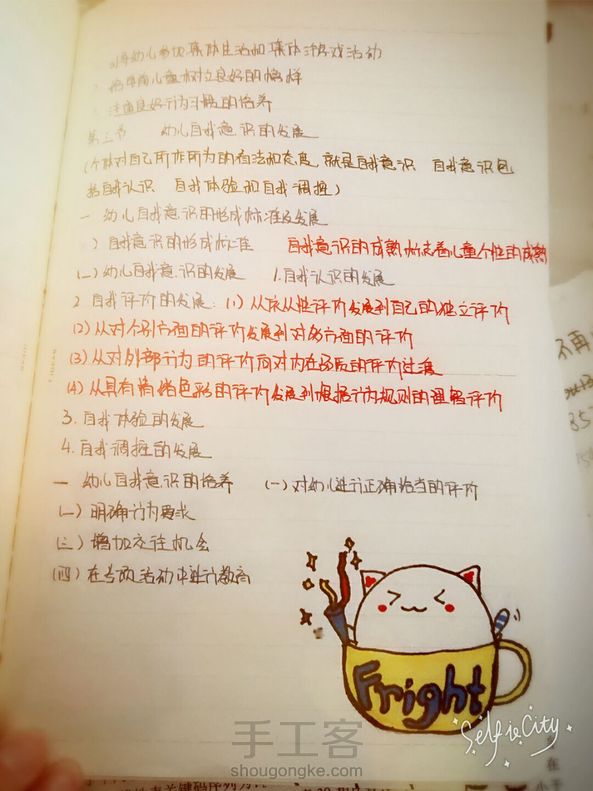 幼儿参加集体生活和集体游戏活动
给学前儿童树立良好的榜样
注重良好行为习惯的培养
第三节 幼儿自我意识的发展
(个体对自己所作所为的看法和态度 就是自我意识 自我意识包
括自我认识 自我体验和自我调控)
一 幼儿自我意识的形成标准及发展
) 自我意识的形成标准 自我意识的成熟标志着儿童个性的成熟
(二) 幼儿自我意识的发展 1.自我认识的发展
2 自我评价的发展: (1) 从依从性评价发展到自己的独立评价
(2) 从对个别方面的评价发展到对多方面的评价
(3) 从对外部行为的评价向对内在品质的评价过渡
(4) 从具有情绪色彩的评价发展到根据行为规则的理智评价
3. 自我体验的发展
4. 自我调控的发展
二 幼儿自我意识的培养 (一) 对幼儿进行正确恰当的评价
(二) 明确行为要求
(三) 增加交往机会
(四) 在专项活动中进行教育
Fright
SelfieCity
手工客
shougongke.com
不再